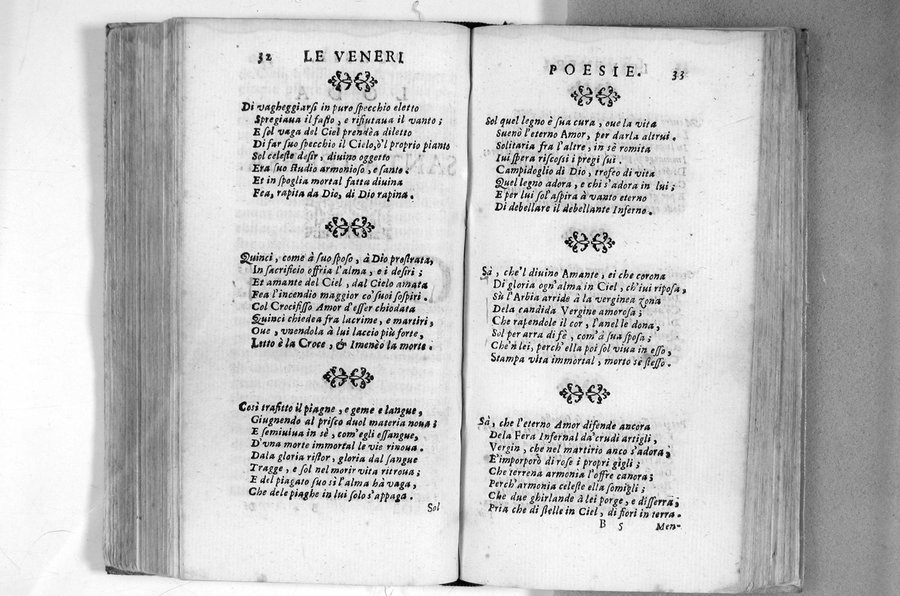 32 LE VENERI
Di vagheggiarsi in puro specchio eletto
Spregiaua il fasto, e rifiutaua il vanto;
E sol vaga del Ciel prendèa diletto
Di far suo specchio il Cielo, ò'l proprio pianto
Sol celeste desir, diuino oggetto
Era suo studio armonioso, e santo.
Et in spoglia mortal fatta diuina
Fea, rapita da Dio, di Dio rapina.
Quinci, come à suo sposo, à Dio prostrata,
In sacrificio offria l'alma, e i desiri;
Et amante del Ciel, dal Cielo amata
Fea l'incendio maggior co' suoi sospiri.
Col Crocifisso Amor d'esser chiodata
Quinci chiedea fra lacrime, e martiri,
Oue, vnendola à lui laccio più forte,
Letto è la Croce, & Imenèo la morte.
Così trafitto il piagne, e geme e langue,
Giugnendo al prisco duol materia noua;
E semiuiua in sè, com'egli essangue,
D'vna morte immortal le vie rinoua.
Dala gloria ristor, gloria dal sangue
Tragge, e sol nel morir vita ritroua;
E del piagato suo sì l'alma hà vaga,
Che dele piaghe in lui solo s'appaga.
Sol
POESIE. 33
Sol quel legno è sua cura, oue la vita
Suenò l'eterno Amor, per darla altrui.
Solitaria fra l'altre, in sè romita
Iui spera riscossi i pregi sui.
Campidoglio di Dio, trofeo di vita
Quel legno adora, e chi s'adora in lui;
E per lui sol'aspira à vanto eterno
Di debellare il debellante Inferno.
Sà, che'l diuino Amante, ei che corona
Di gloria ogn'alma in Ciel, ch'iui riposa,
Sù l'Arbia arride à la verginea zona
Dela candida Vergine amorosa;
Che rapendole il cor, l'anel le dona,
Sol per arra di fè, com'à sua sposa;
Che'n lei, perch'ella poi sol viua in esso,
Stampa vita immortal, morto sè stesso.
Sà, che l'eterno Amor difende ancora
Dela Fera Infernal da' crudi artigli,
Vergin, che nel martirio anco s'adora,
E'imporporò di rose i propri gigli;
Che terrena armonia l'offre canora;
Perch'armonia celeste ella somigli;
Che due ghirlande à lei porge, e disserra,
Pria che di stelle in Ciel, di fiori in terra.
B 5 Men-